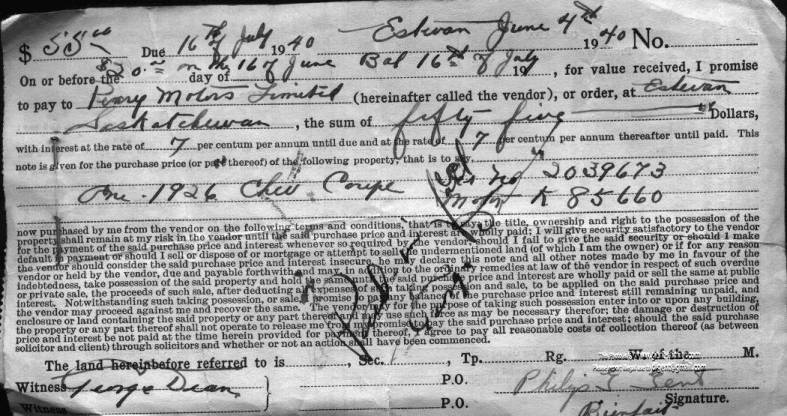 $ 55.00 Due 16th of July 1940 Estevan June 4th 1940 No.
On or before the $20.00 on the 16 of June day of Bal 16th of July 19 , for value received, I promise
to pay to Perry Motors Limited (hereinafter called the vendor), or order, at Estevan
Saskatchewan , the sum of fifty five Dollars,
with interest at the rate of 7 per centum per annum until due and at the rate of 7 per centum per annum thereafter until paid. This
note is given for the purchase price (or part thereof) of the following property, that is to say
One - 1926 Chev Coupe Ser no 2039673
Motor K 85660
now purchased by me from the vendor on the following terms and conditions, that is to say the title, ownership and right to the possession of the
property shall remain at my risk in the vendor until the said purchase price and interest are wholly paid; I will give security satisfactory to the vendor
for the payment of the said purchase price and interest whenever so required by the vendor; should I fail to give the said security or should I make
default in payment or should I sell or dispose of or mortgage or attempt to sell the undermentioned land (of which I am the owner) or if for any reason
the vendor should consider the said purchase price and interest insecure, he may declare this note and all other notes made by me in favour of the
vendor or held by the vendor, due and payable forthwith and may, in addition to the ordinary remedies at law of the vendor in respect of such overdue
indebtedness, take possession of the said property and hold the same until the said purchase price and interest are wholly paid or sell the same at public
or private sale, the proceeds of such sale, after deducting all expenses of such taking possession and sale, to be applied on the said purchase price and
interest. Notwithstanding such taking possession, or sale, I promise to pay the said purchase price and interest still remaining unpaid, and
the vendor may proceed against me and recover the same. The vendor may for the purpose of taking such possession enter into or upon any building,
enclosure or land containing the said property or any part thereof and may use such force as may be necessary therefor; the damage or destruction of
the property or any part thereof shall not operate to release me from my promise to pay the said purchase price and interest; should the said purchase
price and interest be not paid at the time herein provided for payment hereof, I agree to pay all reasonable costs of collection thereof (as between
solicitor and client) through solicitors and whether or not an action shall have been commenced.
The land hereinbefore referred to is , Sec. , Tp. Rg. W. of the M.
Witness George Dean P.O. Philip
Witness P.O. Bienfait Signature.